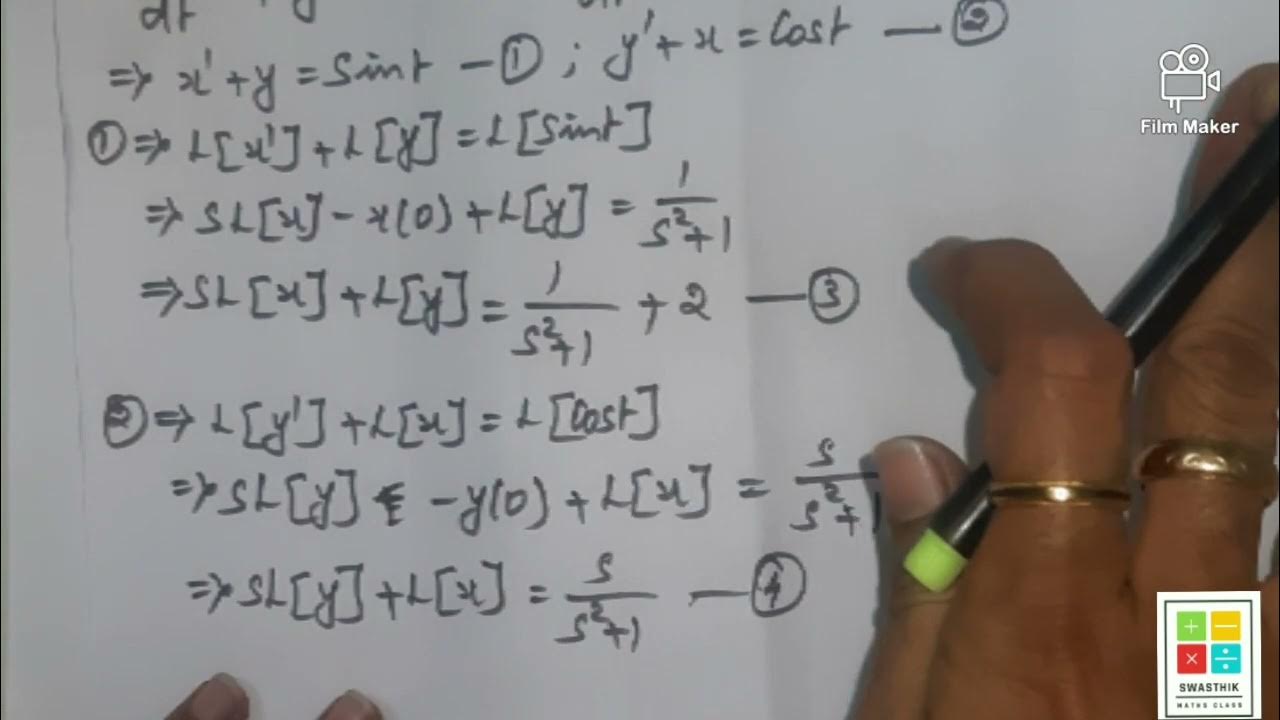 dt + y dt
⇒ x' + y = Sint — ① ; y' + x = Cost — ②
① ⇒ L[x'] + L[y] = L[Sint]
⇒ SL[x] - x(0) + L[y] = 1/(s²+1)
⇒ SL[x] + L[y] = 1/(s²+1) + 2 — ③
② ⇒ L[y'] + L[x] = L[Cost]
⇒ SL[y] - y(0) + L[x] = s/(s²+1)
⇒ SL[y] + L[x] = s/(s²+1) — ④
Film Maker
SWASTHIK
MATHS CLASS